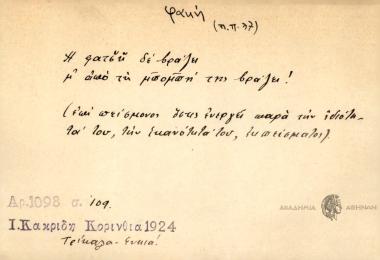 φακή
(π.π. 37)
Ἡ φατσῆ δὲ βράζει
μ' ἀπὸ τὴ μπομπή της βράζει!
(ἐπὶ πείσμονος ὅστις ἐνεργεῖ παρὰ τὴν ἰδιότη-
τά του, τὴν ἱκανότητά του, ἐκ πείσματος).
Αρ. 1098 σ. 109.
Ι. Κακριδη Κορινθια 1924
Τρίκαλα-
ΑΚΑΔΗΜΙΑ ΑΘΗΝΩΝ